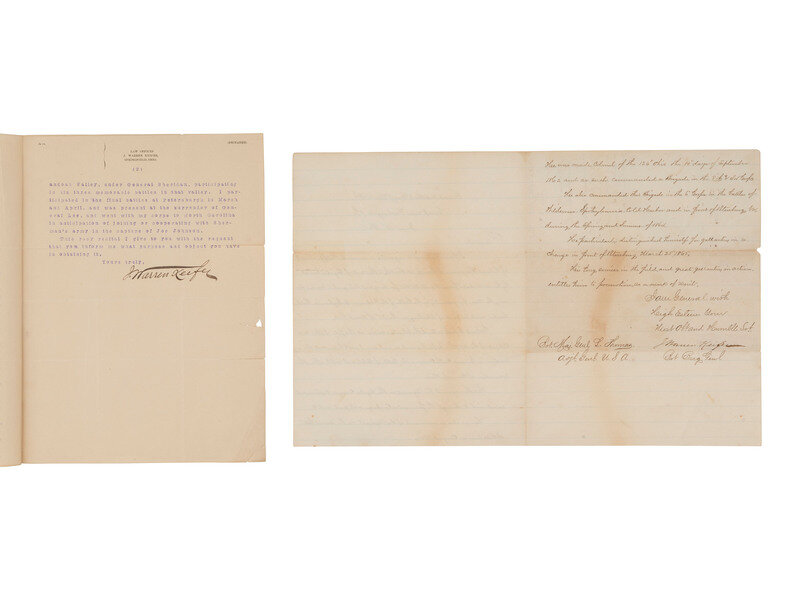 LAW OFFICES
J. WARREN KEIFER,
SPRINGFIELD, OHIO.
(DICTATED)
(2)
andoah Valley, under General Sheridan, participating
in its three memorable battles in that valley. I par-
ticipated in the final battles at Petersburgh in March
and April, and was present at the surrender of Gen-
eral Lee, and went with my corps to North Carolina
in anticipation of joining or cooperating with Sher-
man's army in the capture of Joe Johnson.
This poor recital I give to you with the request
that you inform me what purpose and object you have
in obtaining it.
Yours truly,
J Warren Keifer
He was made Colonel of the 126" Ohio the 10" day of September
1862 and as such commanded a Brigade in the
He also commanded this Brigade in the 6" Corps in the Battles of
Wilderness Spottsylvania Cold Harbor and in front of Petersburg Va
during the Spring and Summer of 1864.
He particularly distinguished himself for gallantry in a
charge in front of Petersburg March 25" 1865.
His long service in the field and great gallantry in action
entitles him to promotion as a mark of merit.
I am General with
High Esteem Your
Most Obt and Humble Svt
J Warren Keifer
Bvt Brig Genl
Bvt Maj Genl L Thomas
Adjt Genl U.S.A